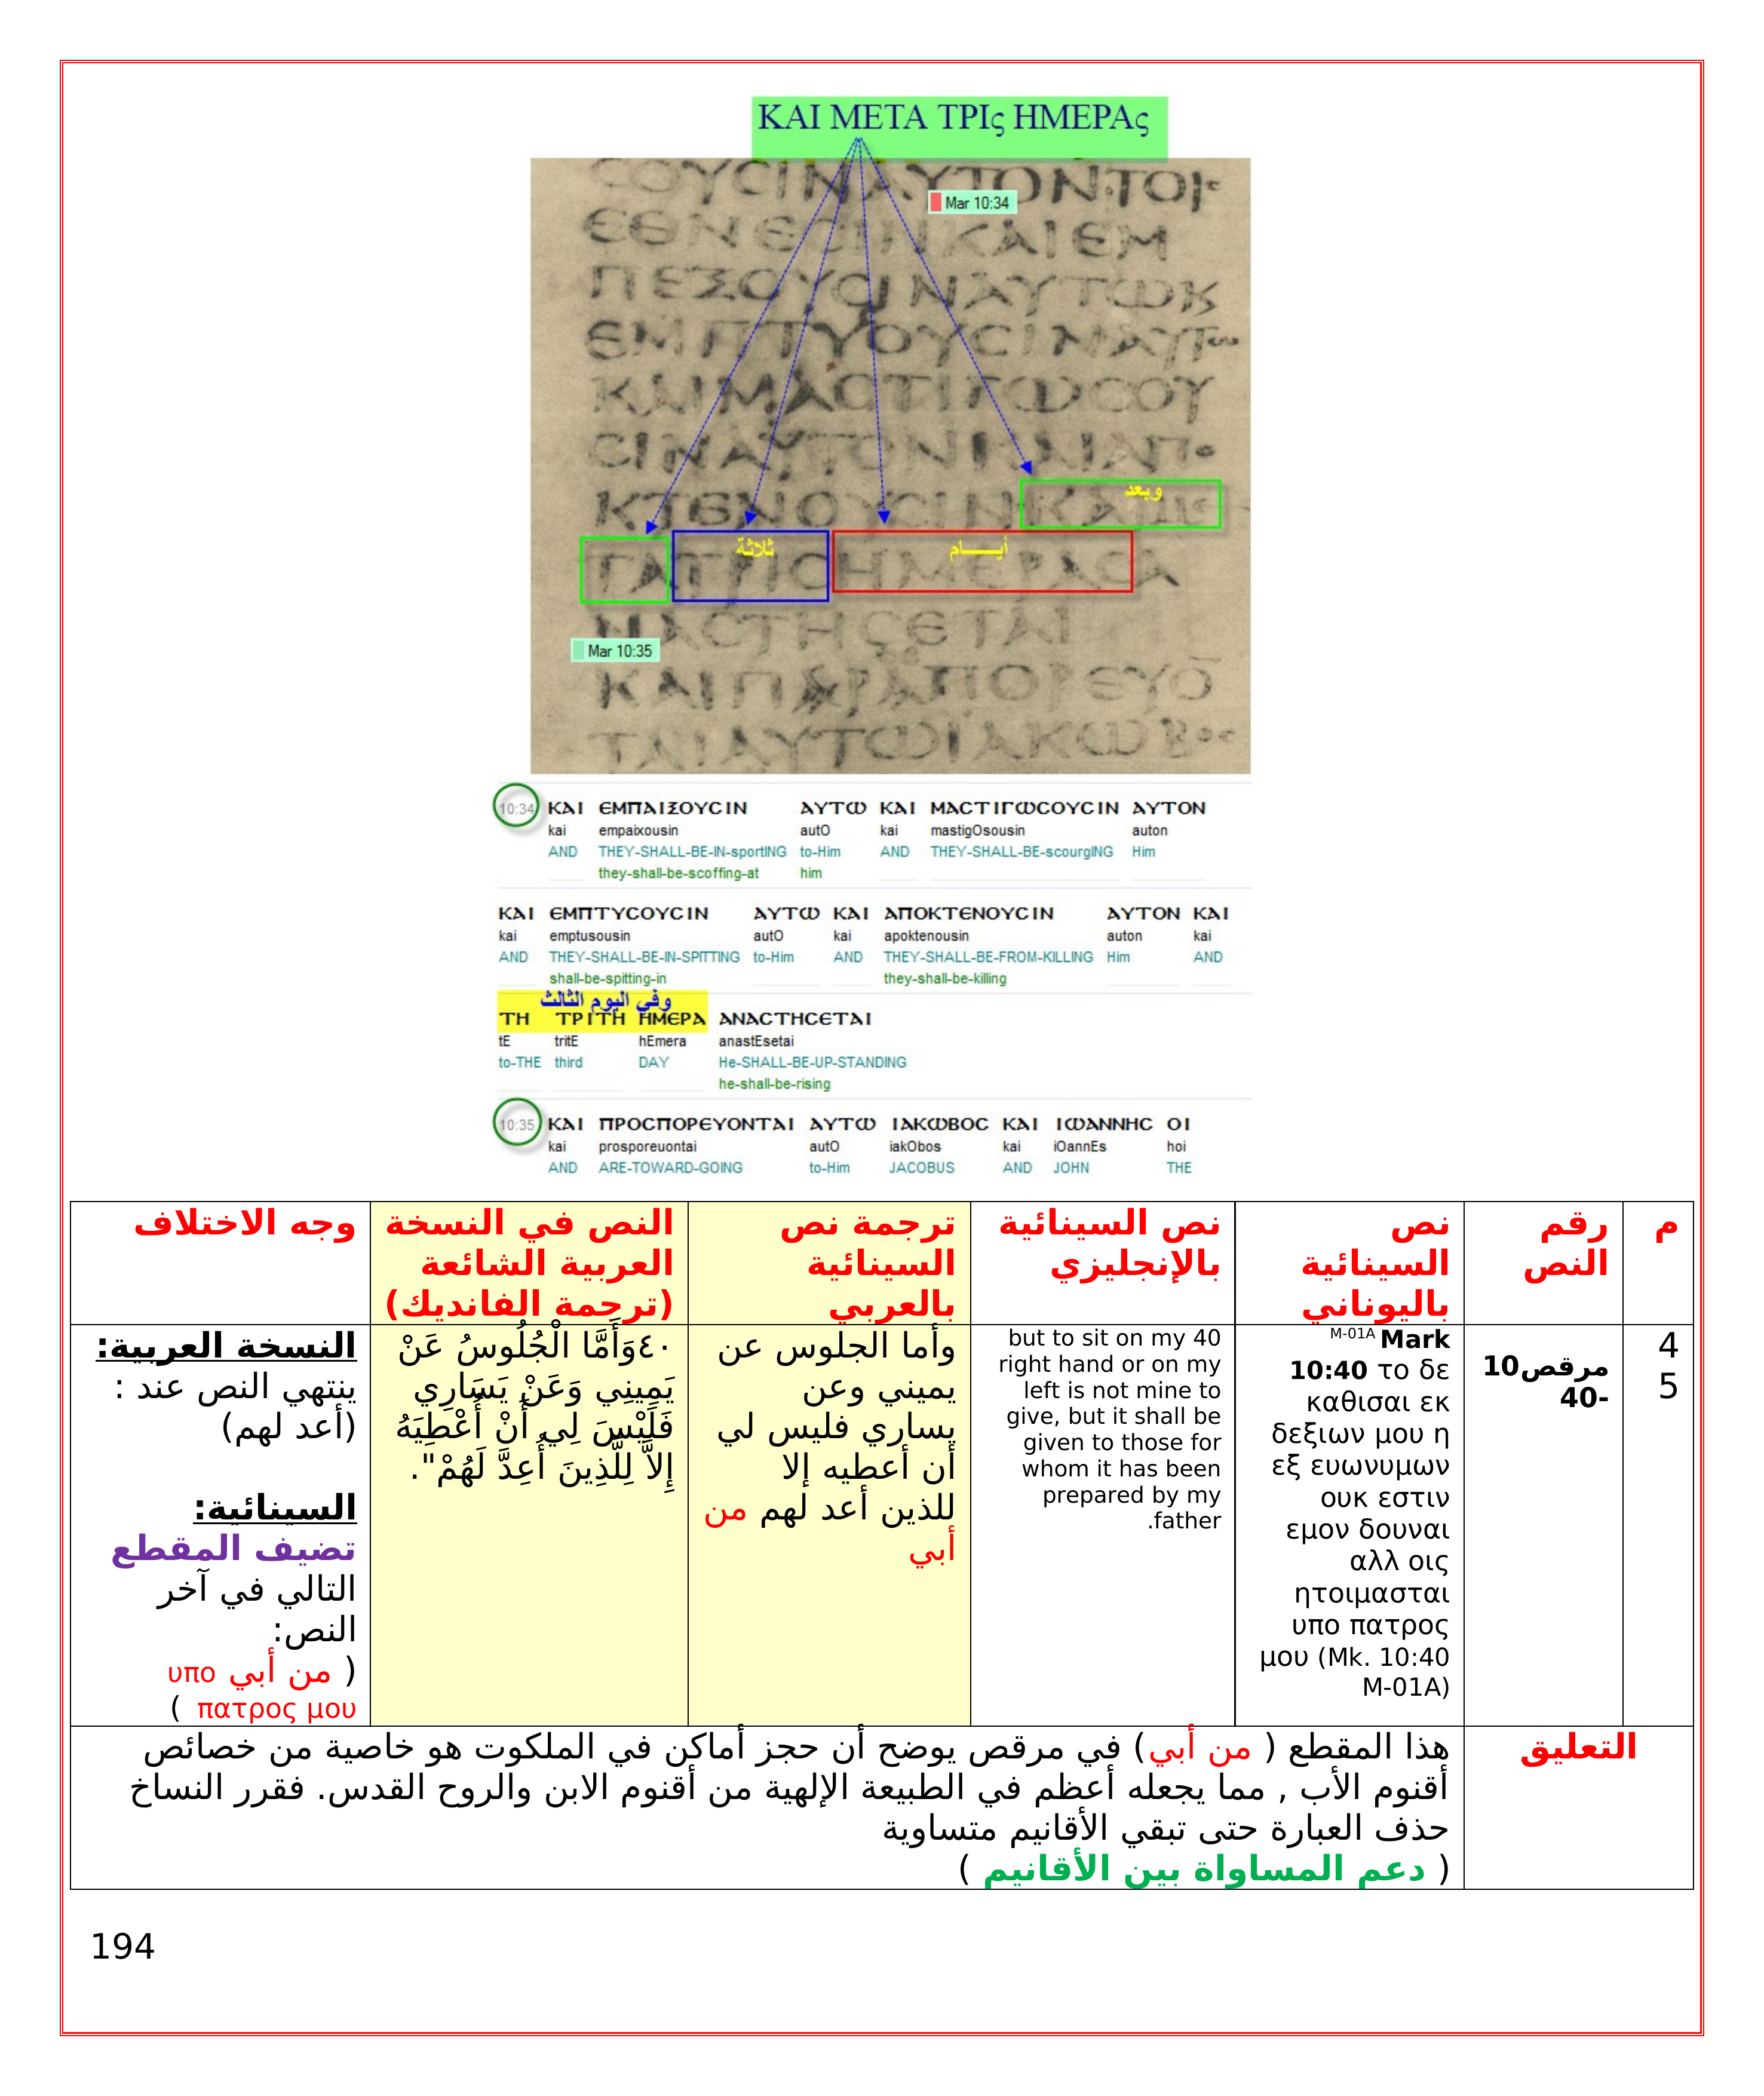 ΚΑΙ ΜΕΤΑ ΤΡΙς ΗΜΕΡΑς
ϹΟΥϹΙΝΑΥΤΟΝΤΟΙϹ
Mar 10:34
ΕΘΝΕϹΙΝΚΑΙΕΜ
ΠΕΞΟΥϹΙΝΑΥΤΩΚ
ΕΜΠΤΥΟΥϹΙΝΑΥΤω
ΚΑΙΜΑϹΤΙΓΩϹΟΥ
ϹΙΝΑΥΤΟΝΚΑΙΑΠο
ΚΤΕΝΟΥϹΙΝΚΑΙΜΕ
وبعد
ΤΑΤΡΙϹΗΜΕΡΑϹΑ
ثلاثة
أيـــام
ΝΑϹΤΗϹΕΤΑΙ
Mar 10:35
ΚΑΙΠΑΡΑΠΟΡΕΥΟ̅
ΤΑΙΑΥΤΩΙΑΚΩΒος
10:34 ΚΑΙ ЄΜΠΑΙΞΟΥϹΙΝ ΑΥΤΩ ΚΑΙ ΜΑϹΤΙΓΩϹΟΥϹΙΝ ΑΥΤΟΝ
kai empaixousin autO kai mastigOsousin auton
AND THEY-SHALL-BE-IN-sportING to-Him AND THEY-SHALL-BE-scourgING Him
they-shall-be-scoffing-at him
ΚΑΙ ЄΜΠΤΥϹΟΥϹΙΝ ΑΥΤΩ ΚΑΙ ΑΠΟΚΤЄΝΟΥϹΙΝ ΑΥΤΟΝ ΚΑΙ
kai emptusousin autO kai apoktenousin auton kai
AND THEY-SHALL-BE-IN-SPITTING to-Him AND THEY-SHALL-BE-FROM-KILLING Him AND
shall-be-spitting-in they-shall-be-killing
وفي اليوم الثالث
ΤΗ ΤΡΙΤΗ ΗΜЄΡΑ ΑΝΑϹΤΗϹЄΤΑΙ
tE tritE hEmera anastEsetai
to-THE third DAY He-SHALL-BE-UP-STANDING
he-shall-be-rising
10:35 ΚΑΙ ΠΡΟϹΠΟΡЄΥΟΝΤΑΙ ΑΥΤΩ ΙΑΚΩΒΟϹ ΚΑΙ ΙΩΑΝΝΗϹ ΟΙ
kai prosporeuontai autO iakObos kai iOannEs hoi
AND ARE-TOWARD-GOING to-Him JACOBUS AND JOHN THE
م
رقم
النص
نص
السينائية
باليوناني
نص السينائية
بالإنجليزي
ترجمة نص
السينائية
بالعربي
النص في النسخة
العربية الشائعة
(ترجمة الفانديك)
وجه الاختلاف
4
5
مرقص10
-40
M-01A Mark
10:40 το δε
καθισαι εκ
δεξιων μου η
εξ ευωνυμων
ουκ εστιν
εμον δουναι
αλλ οις
ητοιμασται
υπο πατρος
μου (Mk. 10:40
M-01A)
but to sit on my 40
right hand or on my
left is not mine to
give, but it shall be
given to those for
whom it has been
prepared by my
father.
وأما الجلوس عن
يميني وعن
يساري فليس لي
أن أعطيه إلا
للذين أعد لهم من
أبي
٤٠وَأَمَّا الْجُلُوسُ عَنْ
يَمِينِي وَعَنْ يَسَارِي
فَلَيْسَ لِي أَنْ أُعْطِيَهُ
إِلاَّ لِلَّذِينَ أُعِدَّ لَهُمْ".
النسخة العربية:
ينتهي النص عند :
(أعد لهم)
السينائية:
تضيف المقطع
التالي في آخر
النص:
( من أبي υπο
πατρος μου )
التعليق
هذا المقطع ( من أبي) في مرقص يوضح أن حجز أماكن في الملكوت هو خاصية من خصائص
أقنوم الأب , مما يجعله أعظم في الطبيعة الإلهية من أقنوم الابن والروح القدس. فقرر النساخ
حذف العبارة حتى تبقي الأقانيم متساوية
( دعم المساواة بين الأقانيم )
194